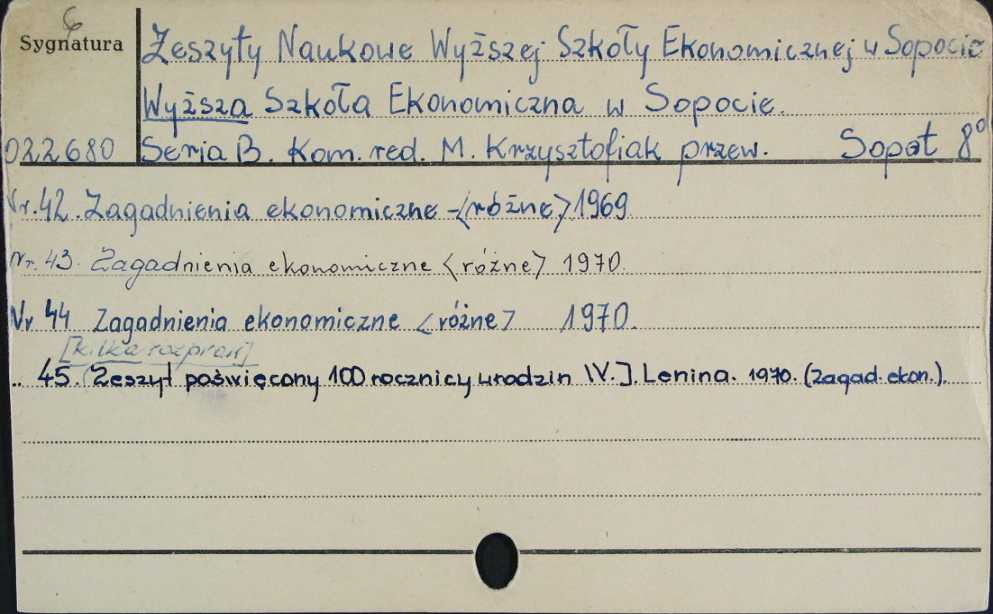 6
Sygnatura
Zeszyty Naukowe Wyższej Szkoły Ekonomicznej w Sopocie
Wyższa Szkoła Ekonomiczna w Sopocie.
022680 Seria B. Kom. red. M. Krzysztofiak przew. Sopot 8°
Nr. 42. Zagadnienia ekonomiczne - <różne> 1969.
Nr. 43. Zagadnienia ekonomiczne <różne> 1970.
Nr 44 Zagadnienia ekonomiczne <różne> 1970.
[kilka rozpraw]
.. 45. (Zeszyt poświęcony 100 rocznicy urodzin W. J. Lenina. 1970. (Zagad. ekon.).